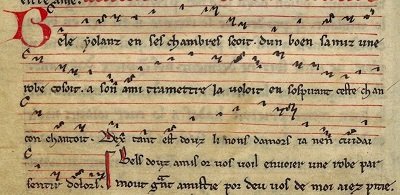 Bele yolanz en ses chambres seoit. dun boen samiz une
robe cosoit. a son ami tramettre la voloit en sospirant ceste chan
con chantoit. Dex tant est douz li nons damors ia nen cuidai
sentir dolors. Bels douz amis or vos voil envoier une robe par
mout grant amistie por deu vos de moi aiez pitie.